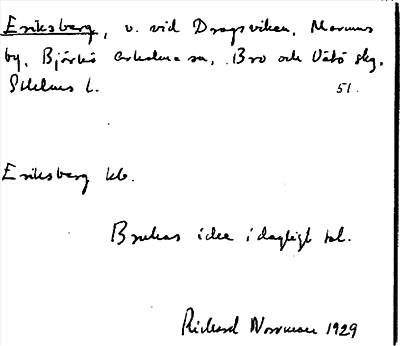 Eriksberg, v. vid Dragsviken, Marums
by, Björkö Arholma sn, Bro och Vätö skg.
Sthlms l. 51.
Eriksberg kb.
Brukas icke i dagligt tal.
Richard Norrman 1929